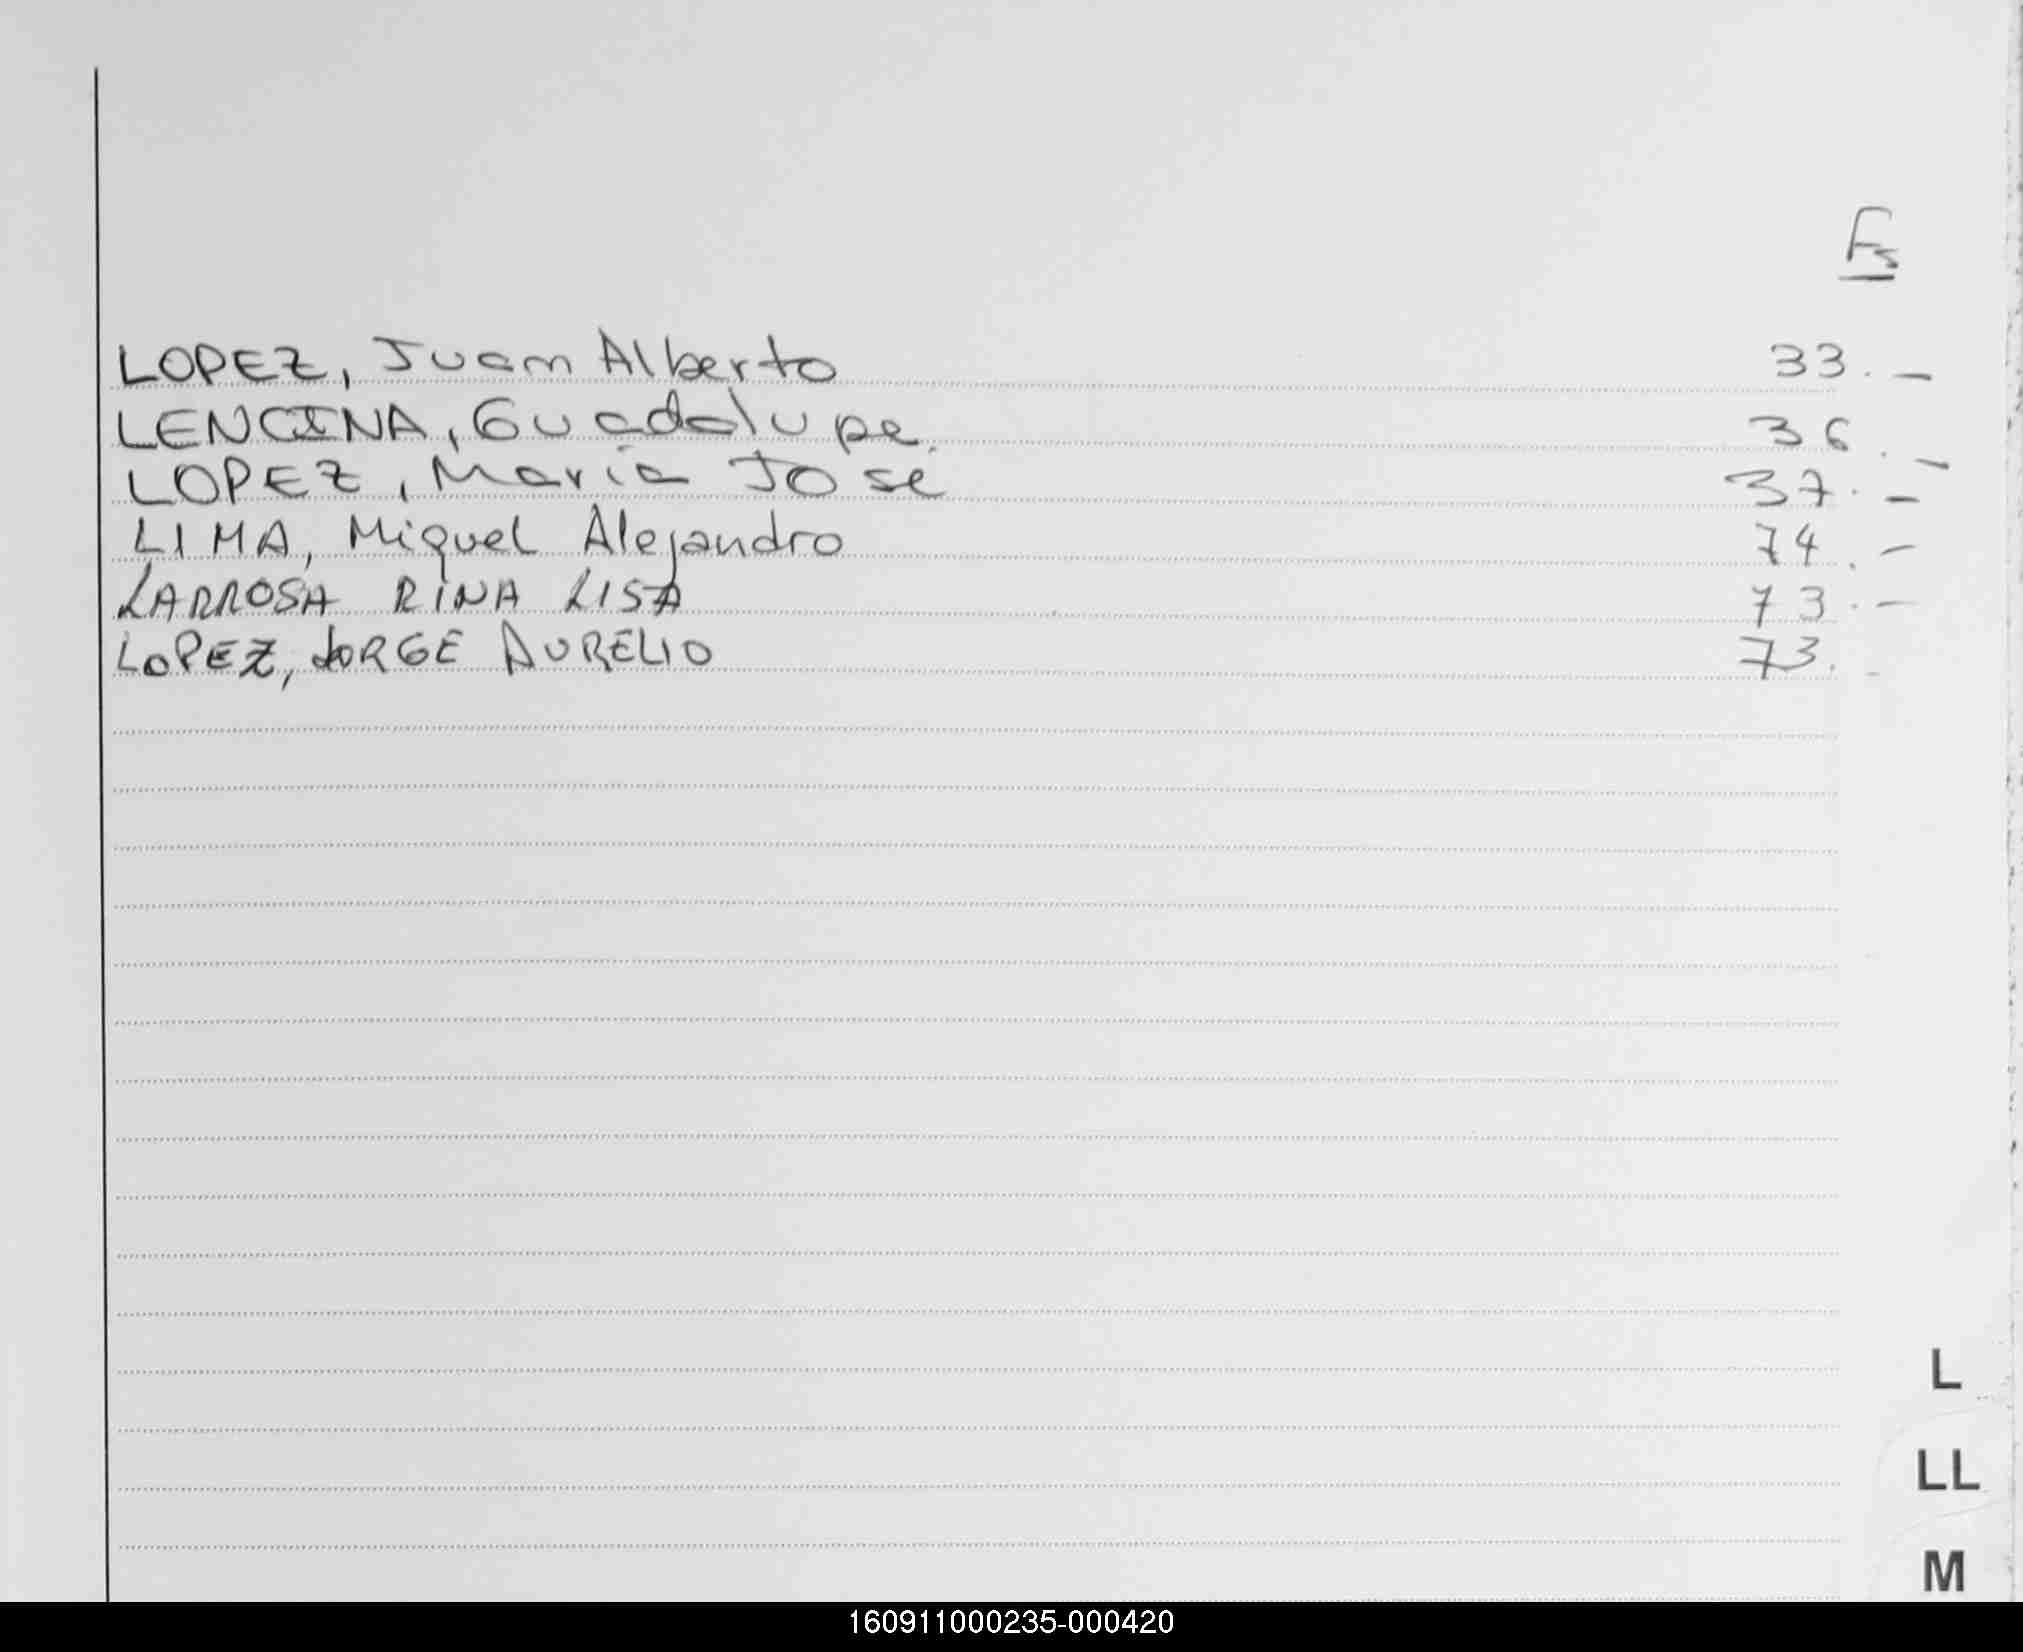 Fs
LOPEZ, Juan Alberto 33.-
LENCINA, Guadalupe. 36.-
LOPEZ, Maria Jose 37.-
LIMA, Miguel Alejandro 74.-
LARROSA RINA LISA 73.-
LOPEZ, JORGE AURELIO 73.-
L
LL
M
160911000235-000420